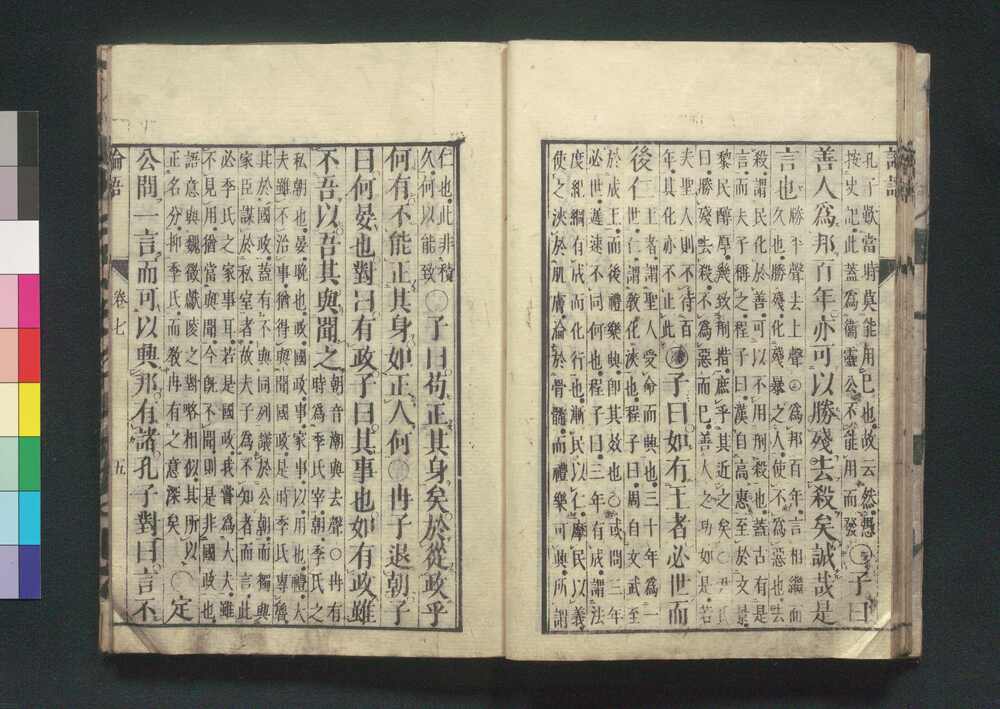 論語
孔子歎當時莫能用己也故云然愚
按史記此蓋爲衛靈公不能用而發
○子曰
善人爲邦百年亦可以勝殘去殺矣誠哉是
言也
勝平聲去上聲○爲邦百年言相繼而
久也勝殘化殘暴之人使不爲惡也去
殺謂民化於善可以不用刑殺也蓋古有是
言而夫子稱之程子曰漢自高惠至於文景
黎民醇厚幾致刑措庶乎其近之矣○尹氏
曰勝殘去殺不爲惡而已善人之功如是若
夫聖人則不待百
年其化亦不止此
○子曰如有王者必世而
後仁
王者謂聖人受命而興也三十年爲一
世仁謂敎化浹也程子曰周自文武至
於成王而後禮樂興即其效也○或問三年
必世遲速不同何也程子曰三年有成謂法
度紀綱有成而化行也漸民以仁摩民以義
使之浹於肌膚淪於骨髓而禮樂可興所謂
仁也此非積
久何以能致
○子曰苟正其身矣於從政乎
何有不能正其身如正人何○冉子退朝子
曰何晏也對曰有政子曰其事也如有政雖
不吾以吾其與聞之
朝音潮與去聲○冉有
時爲季氏宰朝季氏之
私朝也晏晚也政國政事家事以用也禮大
夫雖不治事猶得與聞國政是時季氏專魯
其於國政蓋有不與同列議於公朝而獨與
家臣謀於私室者故夫子爲不知者而言此
必季氏之家事耳若是國政我嘗爲大夫雖
不見用猶當與聞今旣不聞則是非國政也
語意與魏徵獻陵之對略相似其所以
正名分抑季氏而敎冉有之意深矣
○定
公問一言而可以興邦有諸孔子對曰言不
論語 卷七 五